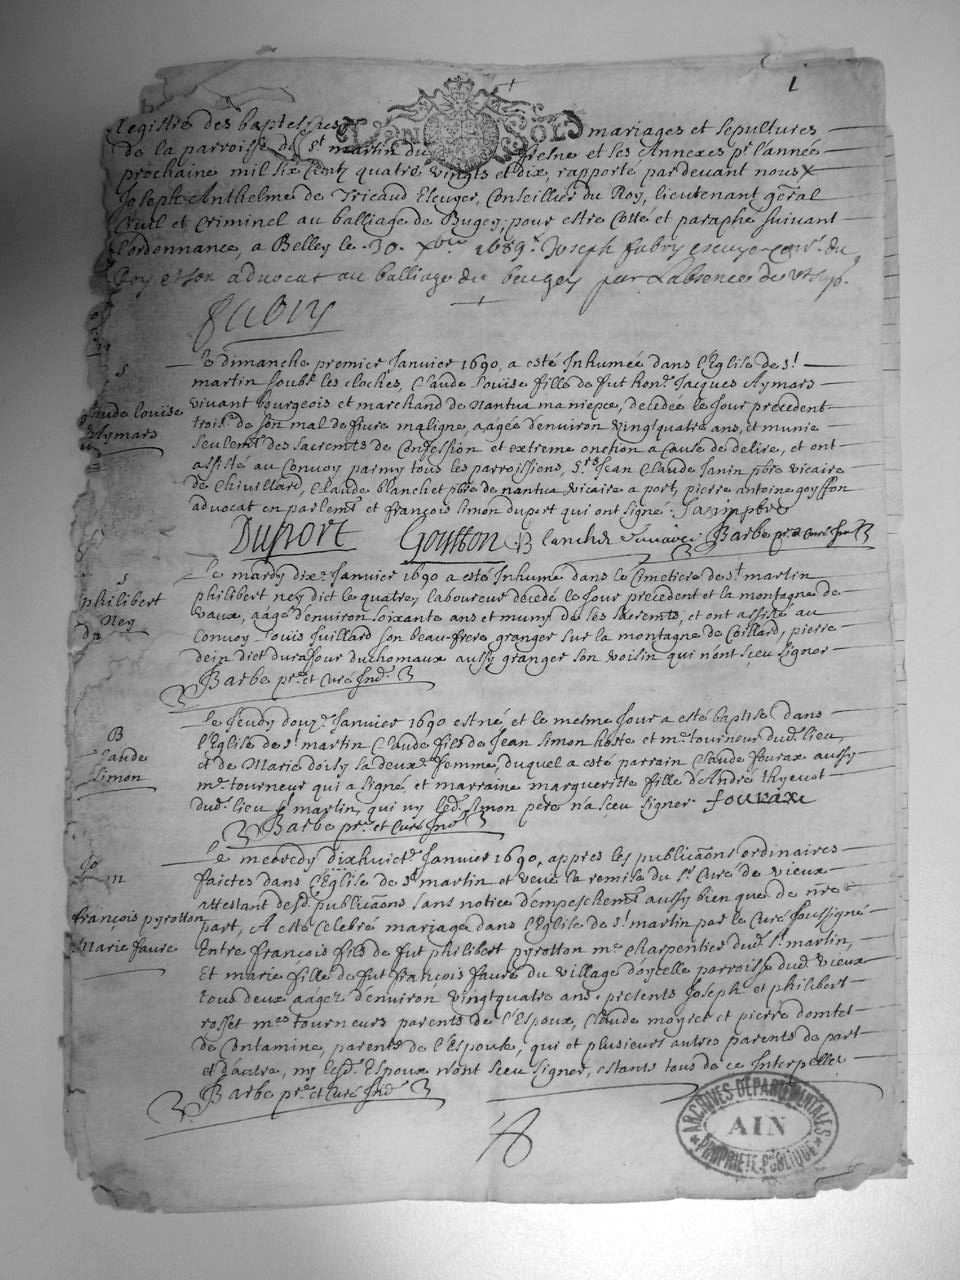 1
Registre des baptesmes mariages et sepultures
de la parroisse de St martin du fresne et ses Annexes pr l'année
prochaine mil six Centz quatre vingts et dix, rapporté pardevant nous
Joseph Anthelme de Tricaud Escuyer, Conseiller du Roy, lieutenant gñral
Civil et Criminel au balliage de Bugey, pour estre Cotté et paraphé suivant
l'ordonnance, a Belley le 30. xbre 1689. Joseph fabry escuyer conr. du
Roy et son advocat au balliage du beugey par l'absence de
fabry
S
Claude Louise
Aymars
Le dimanche premier Janvier 1690, a esté Inhumée dans l'Eglise de St
martin soubs les cloches, Claude Louise fille de fut honn. Jacques Aymars
vivant Bourgeois et marchand de Nantua ma niepce, decedée le Jour precedent
troise. de son mal de fiure maligne, aagée denviron vingtquatre ans, et munie
seulemt des sacremts de Confession et extreme onction a Cause de delire, et ont
assisté au Convoy parmy tous les parroissiens, Sre Jean Claude Janin pbre vicaire
de Chivillard, Claude blanchet pbre de nantua vicaire a port, pierre antoine goyffon
advocat en parlemt et françois Simon duport qui ont signé. Janin pbre
Duport Gouffon Blanchet Barbe pr. et Curé
S
philibert
Ney
Le mardy dixe Janvier 1690 a esté Inhumé dans le Cimetiere de St martin
philibert ney dict le quatre, laboureur decedé le Jour precedent et la montagne de
vaux, aagé d'environ soixante ans et muny de ses sacremts, et ont assisté au
Convoy Louis Juillard son beau-frere granger sur la montagne de Coillard, pierre
dein dict durassour duchomaux aussy granger son voisin qui n'ont sçeu signer
Barbe pr. et Curé Ind.
B
Claude
Simon
Le Jeudy douze Janvier 1690 est né, et le mesme Jour a esté baptisé dans
l'Eglise de St martin Claude fils de Jean Simon hoste et me tourneur dud. lieu,
et de Marie doisy sa deuxe femme, duquel a esté parrain Claude fourax aussy
me tourneur qui a signé, et marraine margueritte fille d'André thyevot
dud. lieu St martin, qui ny led. Simon pere n'a sçeu signer. fourax
Barbe pr. et Curé Ind.
françois pyrotton
Marie faure
Le mercredy dixhuicte Janvier 1690, appres les publicaõns ordinaires
faictes dans l'Eglise de St martin et veue la remise du Sr Curé de vieux
attestant desd. publicaõns sans notice d'empeschemt aussy bien que de nre
part, A esté Celebré mariage dans l'Eglise de St martin par le Curé soussigné
Entre françois fils de fut philibert pyrotton me Charpentier dud. St martin,
Et marie fille de fut françois faure du village d'oyselle parroisse dud. vieux
tous deux aagez d'environ vingtquatre ans. presents Joseph et philibert
rosset mes tourneurs parents de l'Espoux, Claude moyret et pierre domtet
de Contamine, parents de l'Espouse, qui et plusieurs autres parents de part
et d'autre, ny lesd. Espoux n'ont sceu signer, estants tous de ce Interpellés
Barbe pr. et Curé Ind.
ARCHIVES DÉPARTEMENTALES
AIN
PROPRIÉTÉ PUBLIQUE